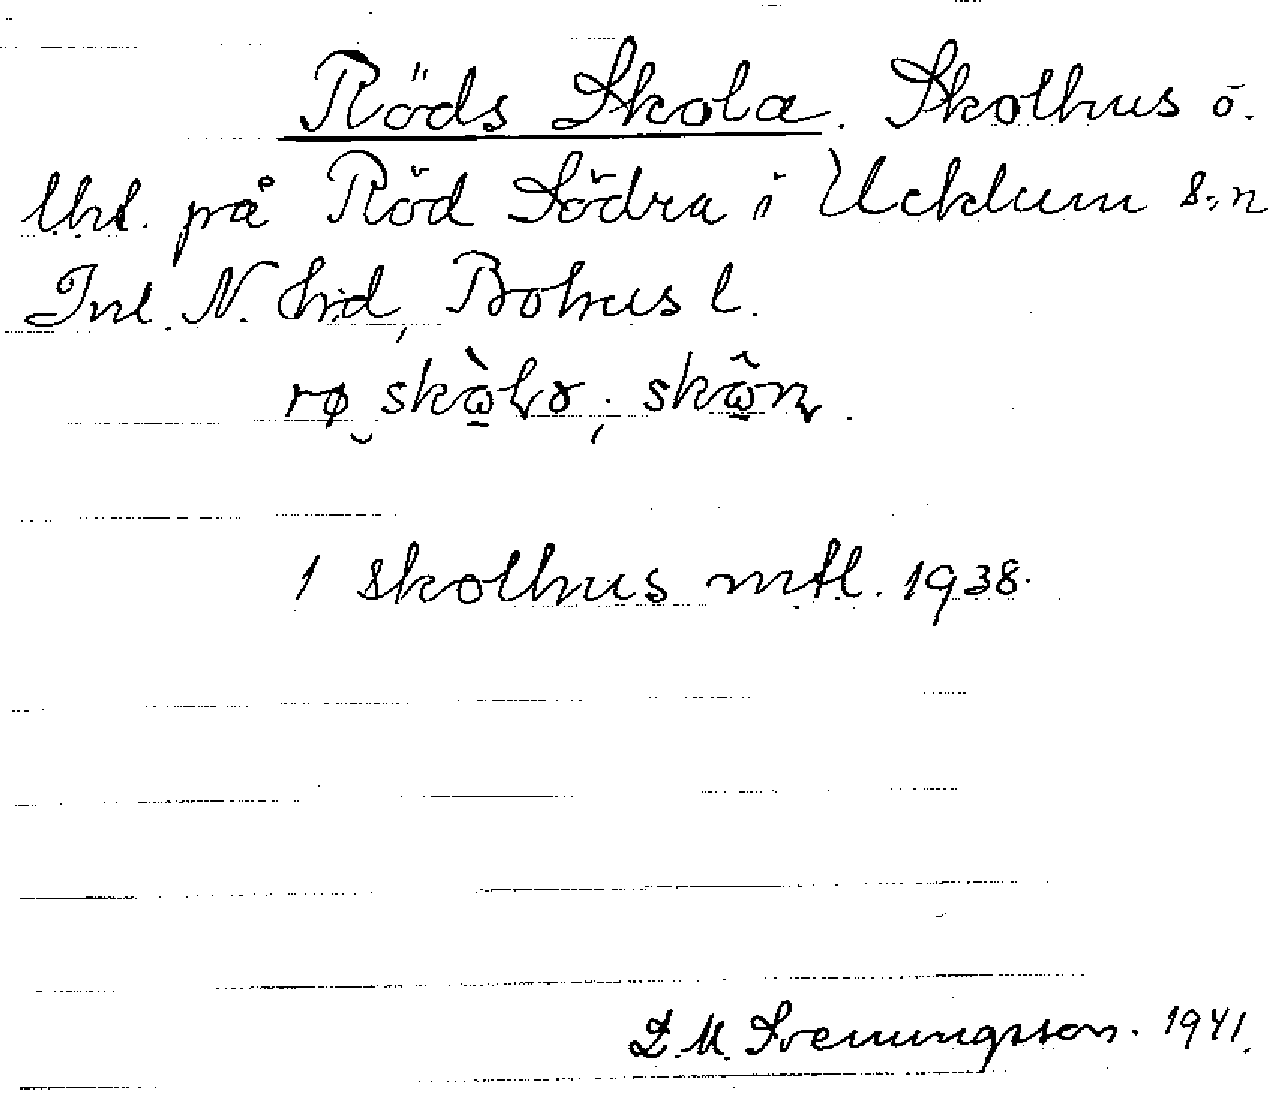 Röds Skola. Skolhus o.
lht. på Röd Södra i Ucklum s:n
Inl. N. hd, Bohus l.
1 skolhus mtl. 1938.
D. M. Svenningsson. 1941.